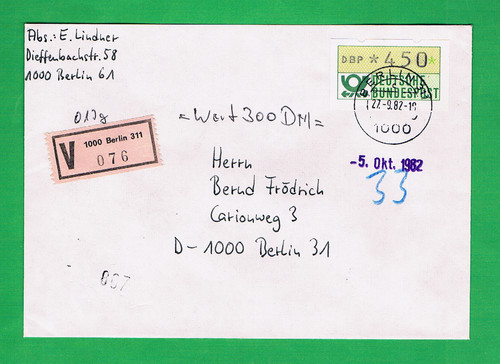 Abs.: E. Lindner
Dieffenbachstr. 58
1000 Berlin 61
DBP *450*
DEUTSCHE
BUNDESPOST
BERLIN
27.-9.82-18
1000
017g
= Wert 300 DM =
V 1000 Berlin 311
076
-5. Okt. 1982
33
Herrn
Bernd Frödrich
Carionweg 3
D-1000 Berlin 31
067